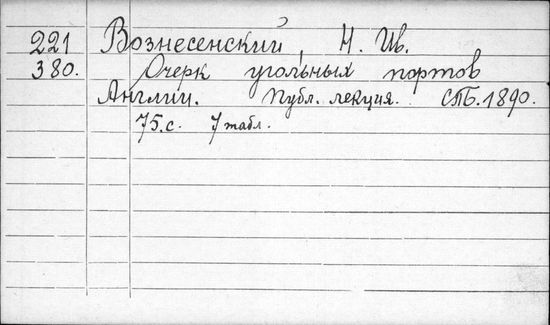 221 Вознесенский, Н. Ив.
380. Очерк угольных портов
Англии. Публ. лекция. СПБ. 1890.
75.с. 7 табл.